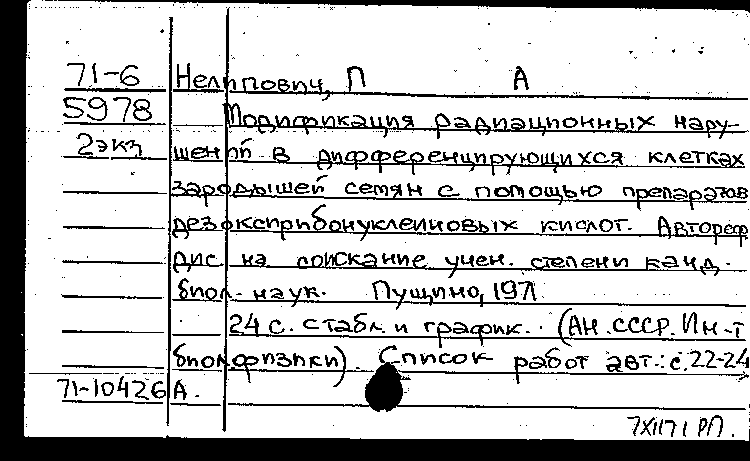 71-6 Нелипович, П А
5978 Модификация радиационных нару-
2экз шений в дифференцирующихся клетках
зародышей семян с помощью препаратов
дезоксирибонуклеиновых кислот. Автореф
дис. на соискание учен. степени канд.
биол. наук. Пущино, 1971
24 с. с табл. и график. (АН.СССР. Ин-т
биол. физики) Список работ авт.: с. 22-24
71-10426 А.
7XII71 РП.